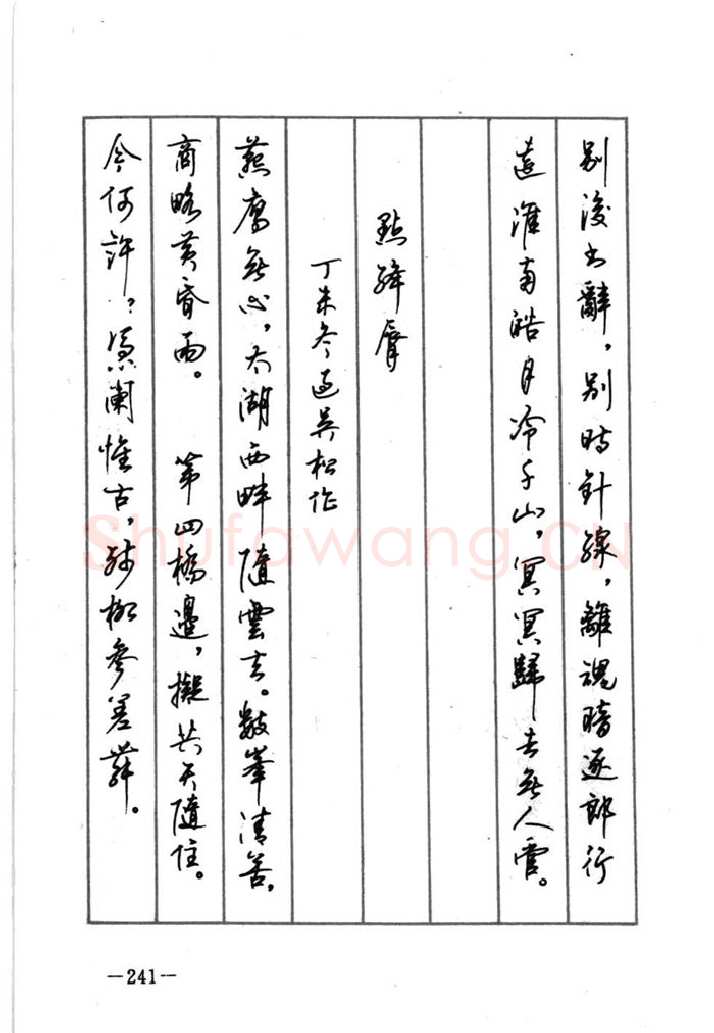 別後書辭，別時針線，離魂暗逐郎行
遠淮南皓月冷千山，冥冥歸去無人管。
點絳唇
丁未冬過吳松作
燕雁無心，太湖西畔隨雲去。數峯清苦，
商略黃昏雨。 第四橋邊，擬共天隨住。
今何許？憑闌懷古，殘柳參差舞。
Shufawang.CN
—241—